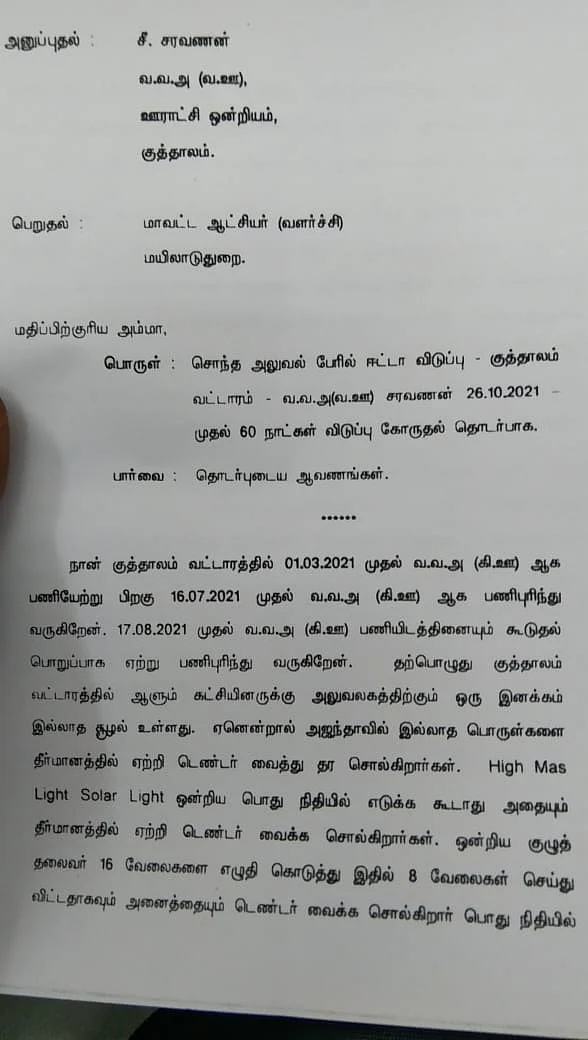 அனுப்புதல் : சீ. சரவணன்
வ.வ.அ (வ.ஊ),
ஊராட்சி ஒன்றியம்,
குத்தாலம்.
பெறுதல் : மாவட்ட ஆட்சியர் (வளர்ச்சி)
மயிலாடுதுறை.
மதிப்பிற்குரிய அம்மா,
பொருள் : சொந்த அலுவல் பேரில் ஈட்டா விடுப்பு - குத்தாலம்
வட்டாரம் - வ.வ.அ(வ.ஊ) சரவணன் 26.10.2021 –
முதல் 60 நாட்கள் விடுப்பு கோருதல் தொடர்பாக.
பார்வை : தொடர்புடைய ஆவணங்கள்.
******
நான் குத்தாலம் வட்டாரத்தில் 01.03.2021 முதல் வ.வ.அ (கி.ஊ) ஆக
பணியேற்று பிறகு 16.07.2021 முதல் வ.வ.அ (கி.ஊ) ஆக பணிபுரிந்து
வருகிறேன். 17.08.2021 முதல் வ.வ.அ (கி.ஊ) பணியிடத்தினையும் கூடுதல்
பொறுப்பாக ஏற்று பணிபுரிந்து வருகிறேன். தற்பொழுது குத்தாலம்
வட்டாரத்தில் ஆளும் கட்சியினருக்கு அலுவலகத்திற்கும் ஒரு இனக்கம்
இல்லாத சூழல் உள்ளது. ஏனென்றால் அஜந்தாவில் இல்லாத பொருள்களை
தீர்மானத்தில் ஏற்றி டெண்டர் வைத்து தர சொல்கிறார்கள். High Mas
Light Solar Light ஒன்றிய பொது நிதியில் எடுக்க கூடாது அதையும்
தீர்மானத்தில் ஏற்றி டெண்டர் வைக்க சொல்கிறார்கள். ஒன்றிய குழுத்
தலைவர் 16 வேலைகளை எழுதி கொடுத்து இதில் 8 வேலைகள் செய்து
விட்டதாகவும் அனைத்தையும் டெண்டர் வைக்க சொல்கிறார் பொது நிதியில்